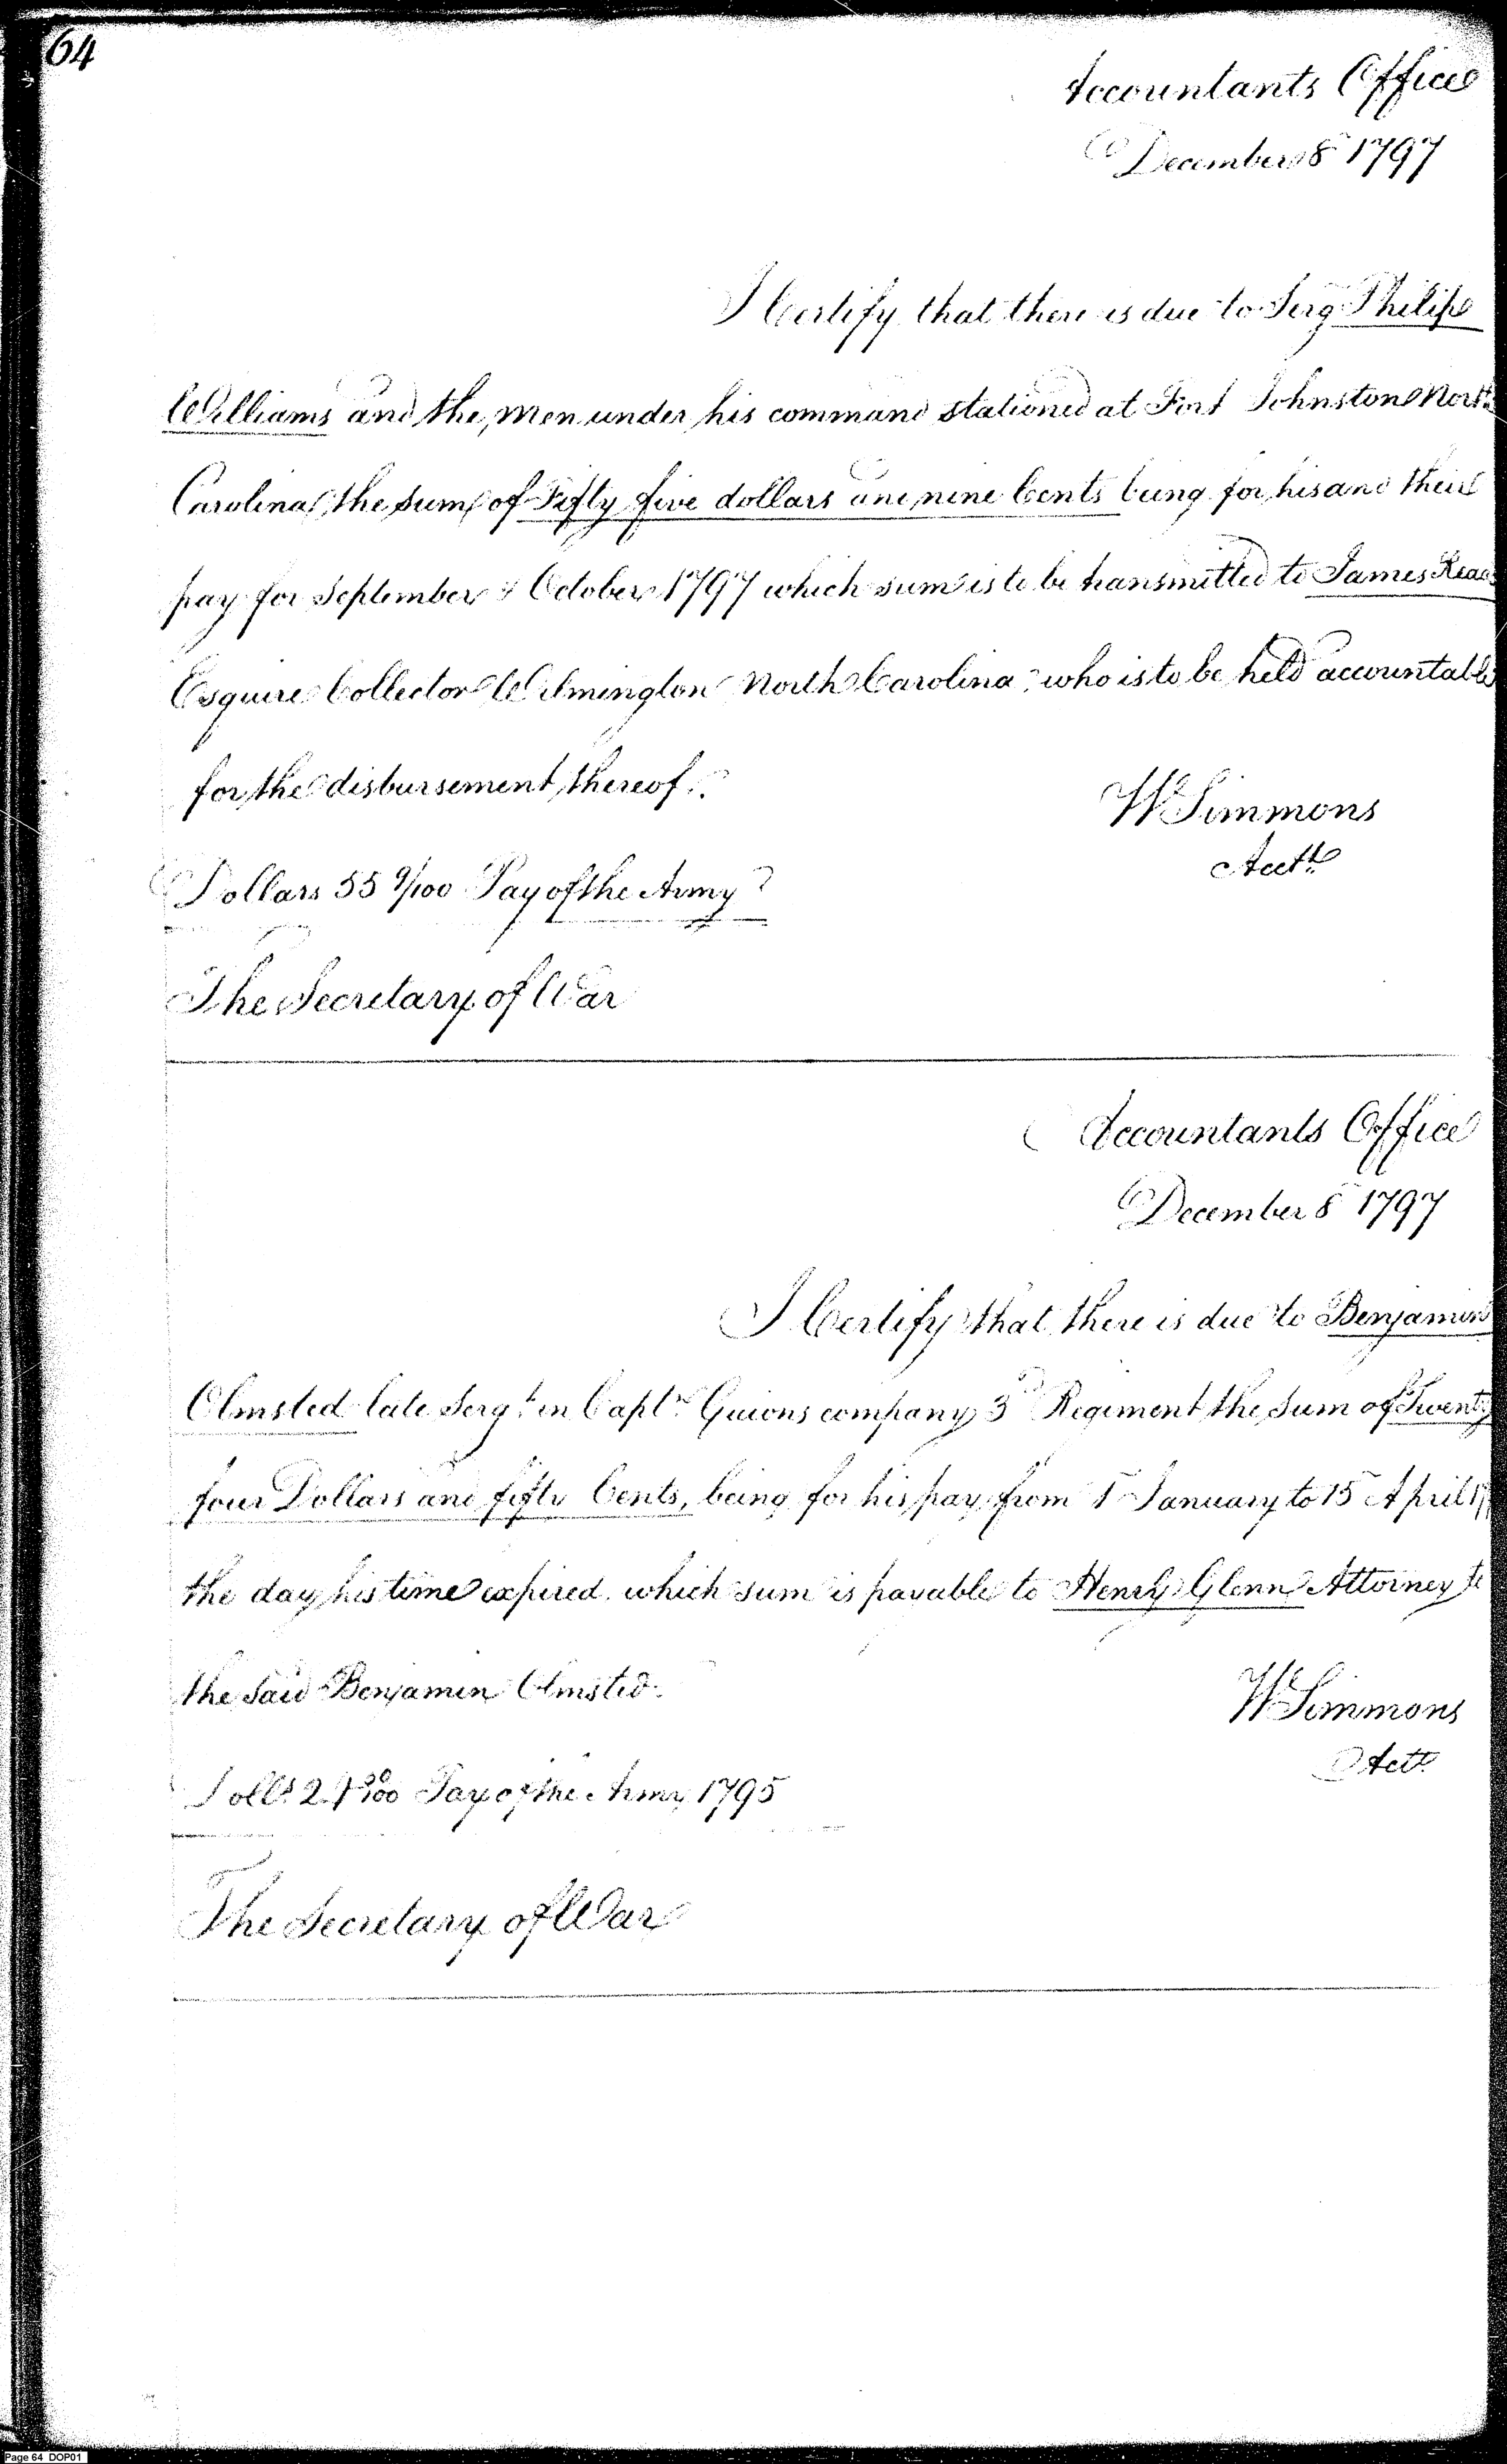 64
Accountants Office
December 8 1797
I Certify that there is due to Serg Philip
Williams and the men under his command stationed at Fort Johnston North
Carolina the sum of Fifty five dollars and nine Cents being for his and their
pay for September & October 1797 which sum is to be transmitted to James Read
Esquire Collector Wilmington North Carolina, who is to be held accountable
for the disbursement thereof.
W Simmons
Acctt
Dollars 55 9/100 Pay of the Army
The Secretary of War
Accountants Office
December 8 1797
I Certify that there is due to Benjamin
Olmsted late Sergt in Captn Guions company 3d Regiment the Sum of Twenty
four Dollars and fifty Cents, being for his pay from 1 January to 15 April
the day his time expired which sum is payable to Henry Glenn Attorney to
the said Benjamin Olmsted.
W Simmons
Actt
Dolls 24 50/100 Pay of the Army 1795
The Secretary of War
Page 64 DOP01